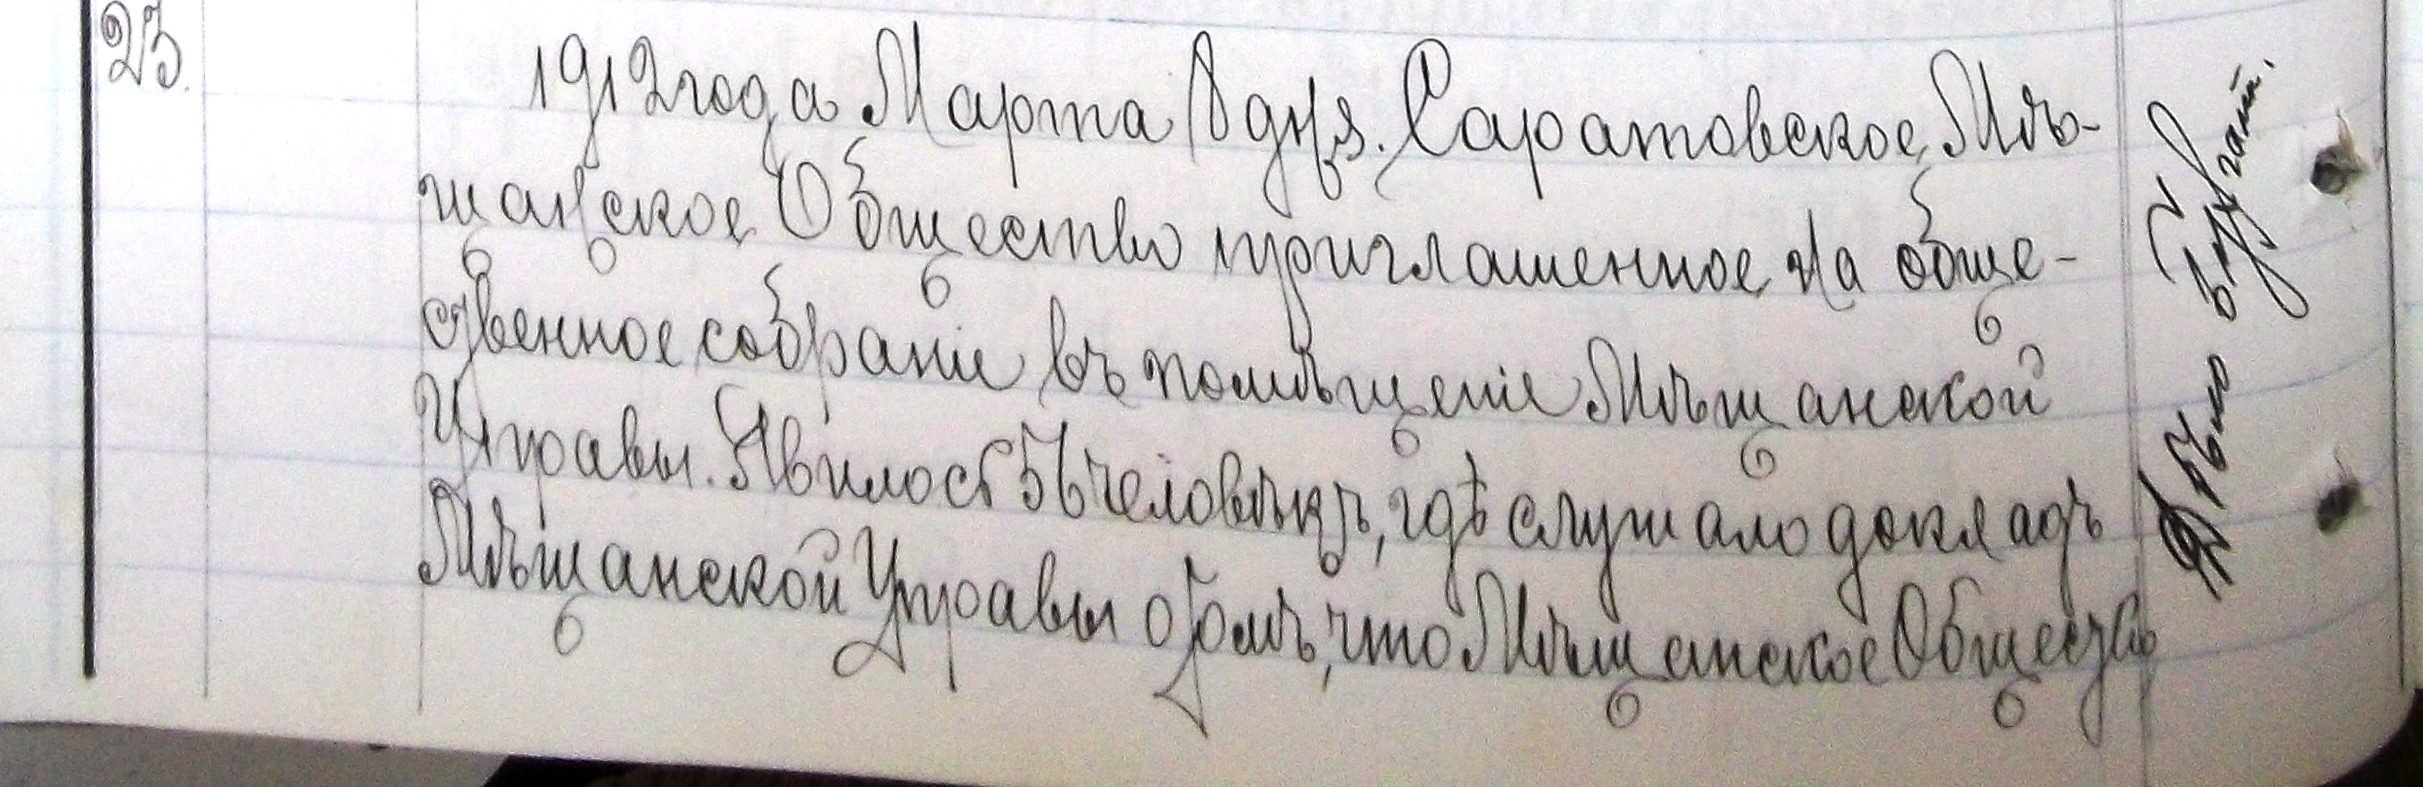 23.
1912 года Марта 8 дня. Саратовское Мѣ-
щанское Общество приглашенное на обще-
ственное собраніе въ помѣщеніе Мѣщанской
Управы. Явилось 56 человѣкъ, гдѣ слушало докладъ
Мѣщанской Управы о томъ, что Мѣщанское Общество